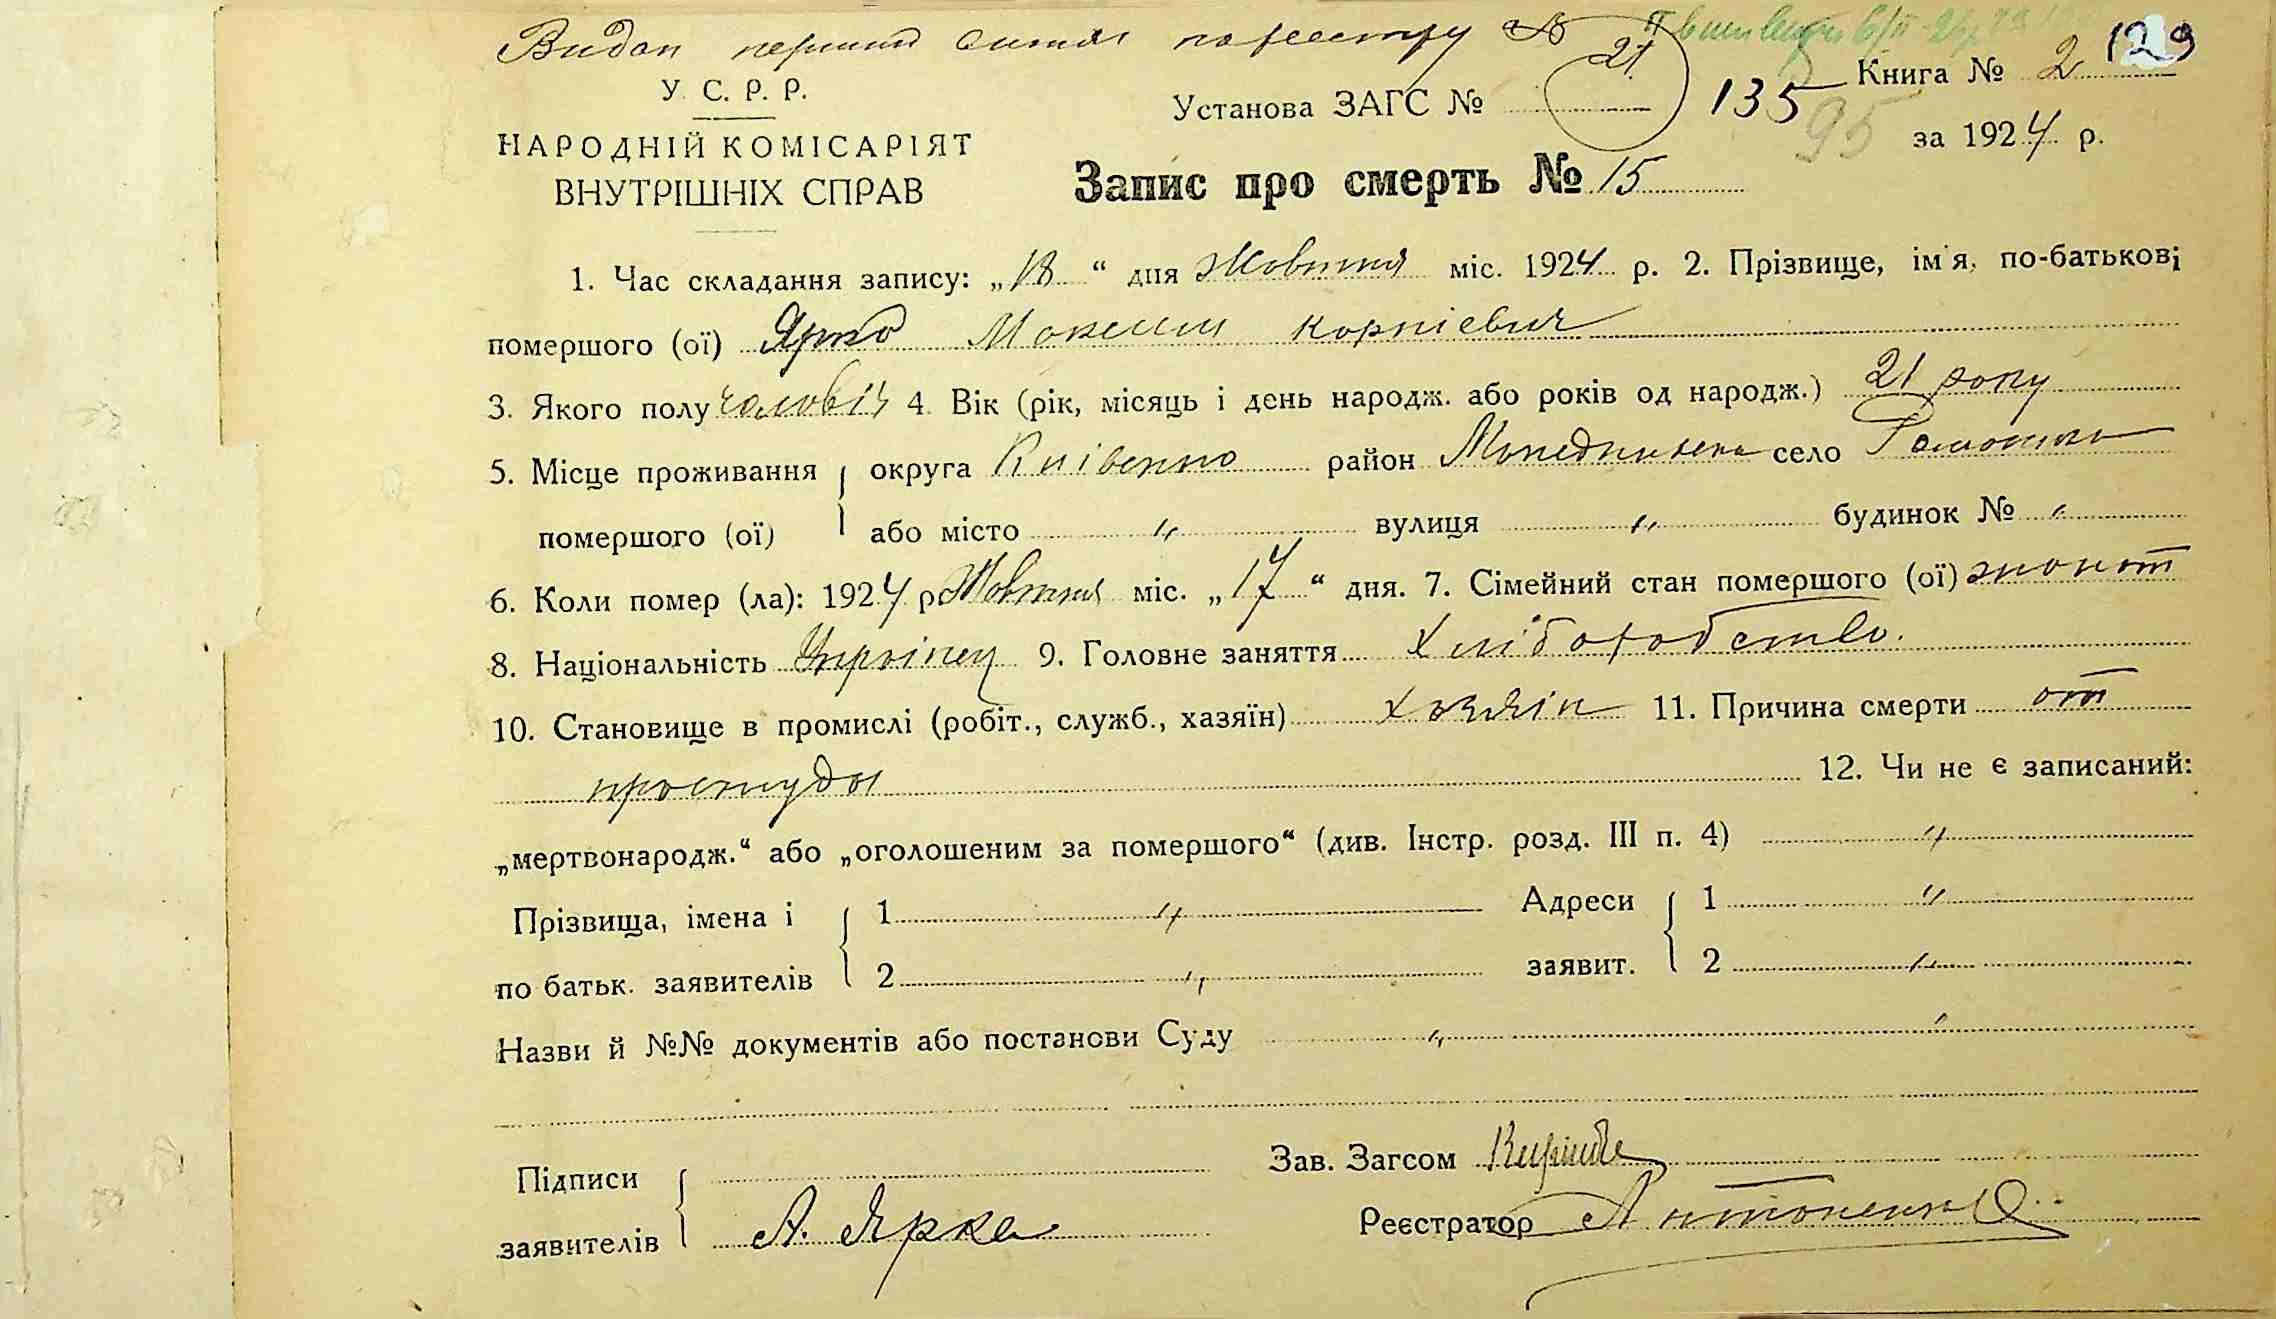 Видан перший витяг по реєстру №
21
129
У. С. Р. Р.
Установа ЗАГС №
135
95
Книга № 2
НАРОДНІЙ КОМІСАРІЯТ
ВНУТРІШНІХ СПРАВ
за 1924 р.
Запис про смерть № 15
1. Час складання запису: „18“ дня Жовтня міс. 1924 р. 2. Прізвище, ім'я, по-батькові
помершого (ої) Ярко Корнієвич
3. Якого полу чоловіч 4. Вік (рік, місяць і день народж. або років од народж.) 21 року
5. Місце проживання округа район село
помершого (ої) або місто " вулиця " будинок № "
6. Коли помер (ла): 1924 р. Жовтня міс. „17“ дня. 7. Сімейний стан помершого (ої) жонат
8. Національність Українец 9. Головне заняття хліборобство.
10. Становище в промислі (робіт., служб., хазяїн) хазяін 11. Причина смерти от
простуды 12. Чи не є записаний:
„мертвонародж.“ або „оголошеним за помершого“ (див. Інстр. розд. III п. 4) "
Прізвища, імена і 1 " Адреси 1 "
по батьк. заявителів 2 " заявит. 2 "
Назви й №№ документів або постанови Суду " "
Підписи Зав. Загсом
заявителів А. Ярко Реєстратор Антоненко